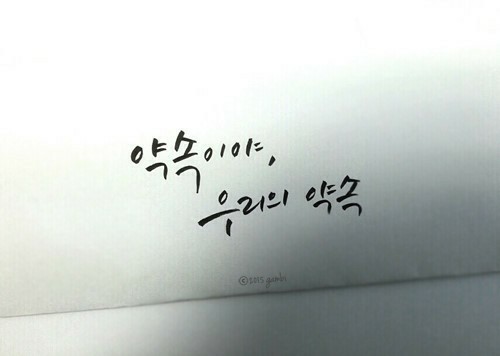 약속이야,
우리의 약속